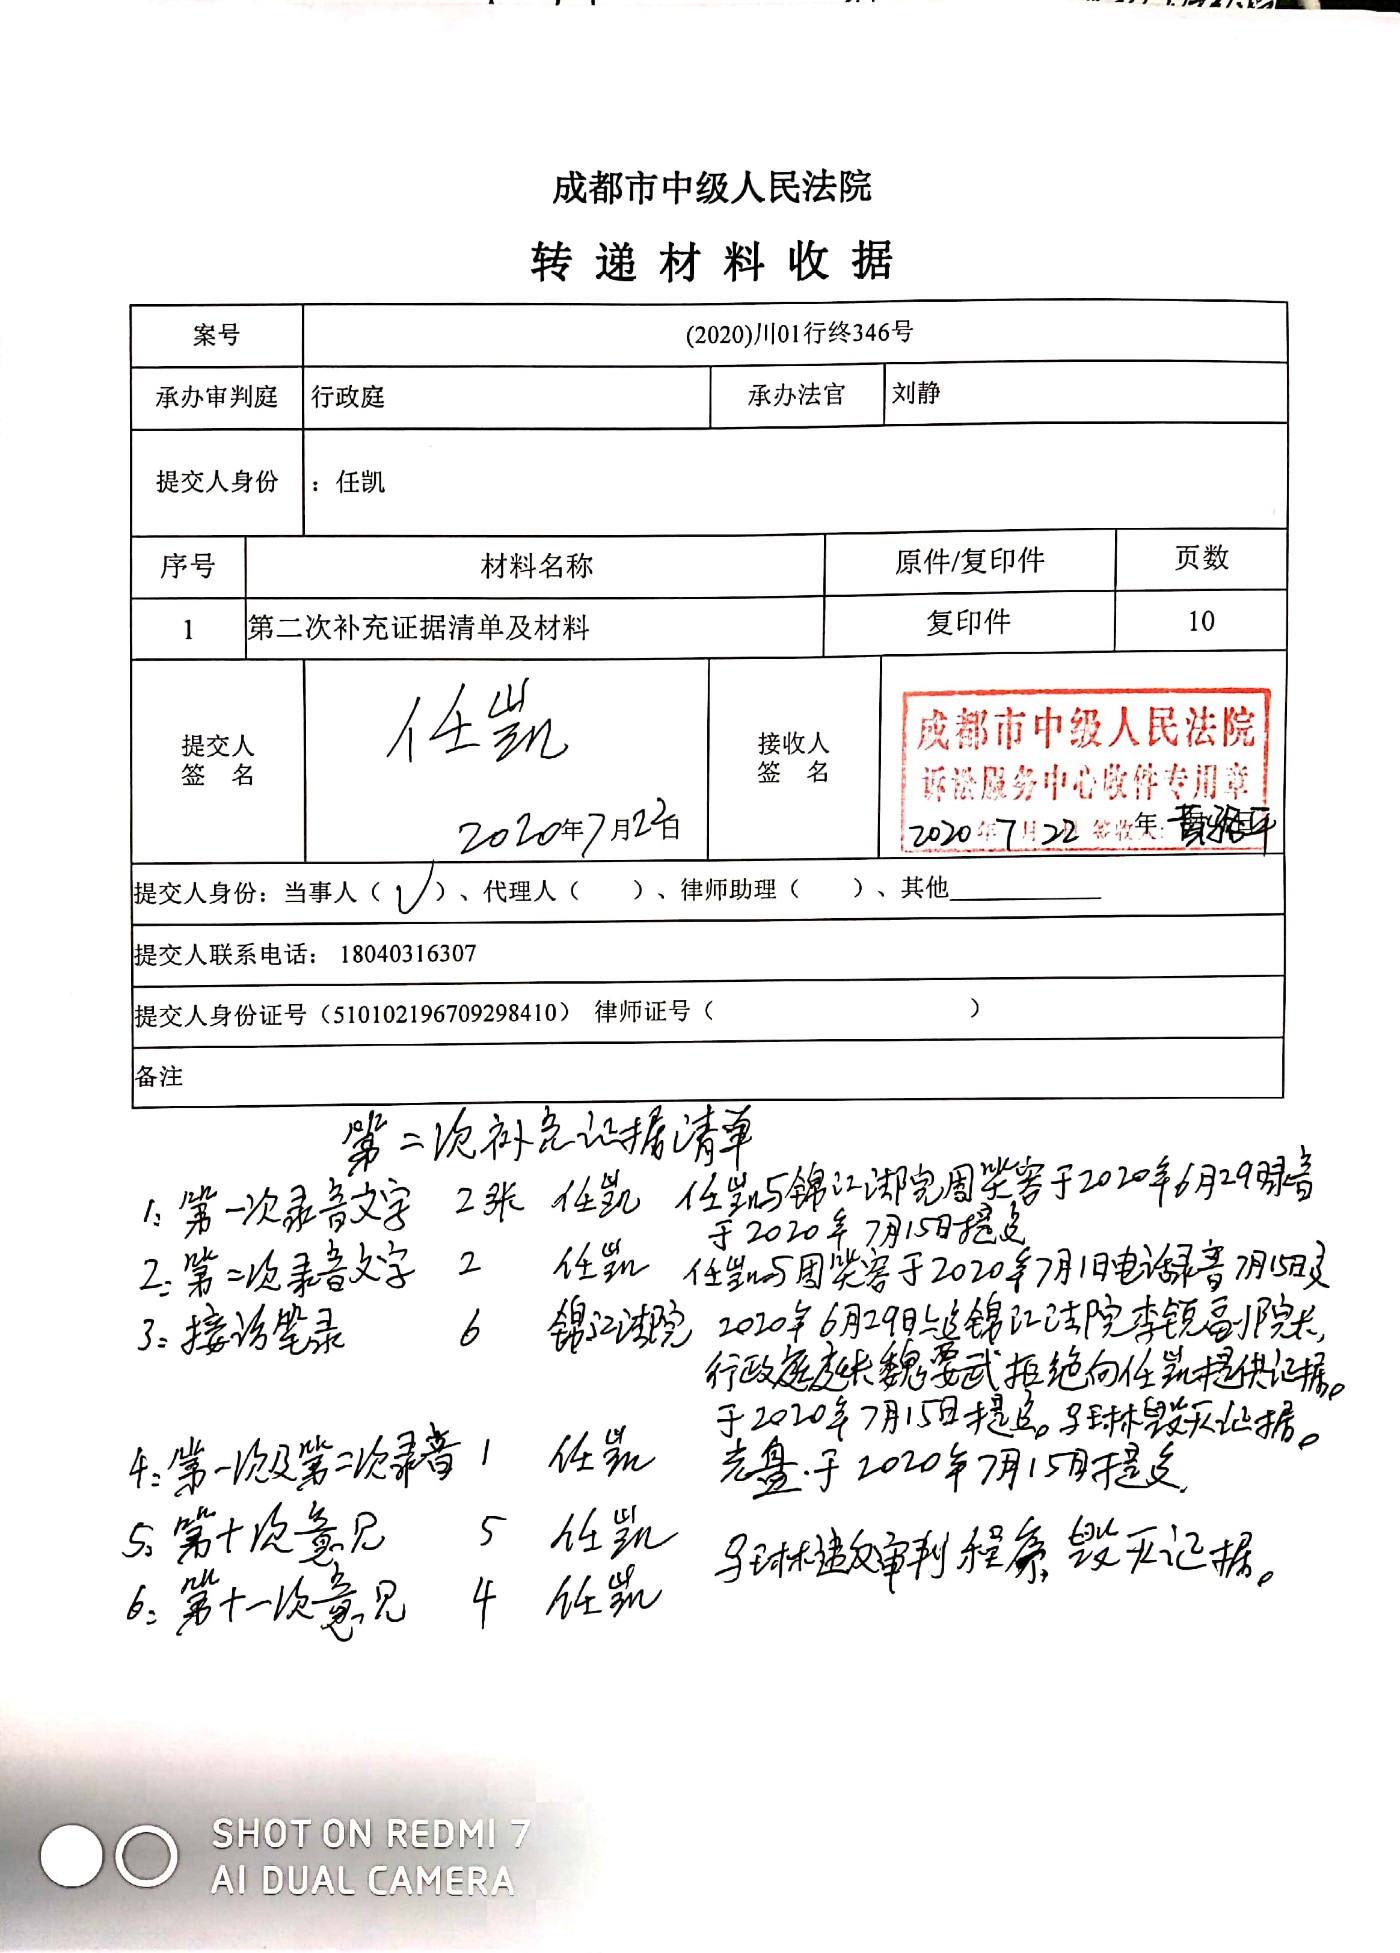 成都市中级人民法院
转递材料收据
案号 (2020)川01行终346号
承办审判庭 行政庭 承办法官 刘静
提交人身份 :任凯
序号 材料名称 原件/复印件 页数
1 第二次补充证据清单及材料 复印件 10
提交人
签 名
任凯
2020年7月22日
接收人
签 名
成都市中级人民法院
诉讼服务中心收件专用章
2020年7月22 签收人: 年
提交人身份:当事人(√)、代理人( )、律师助理( )、其他
提交人联系电话: 18040316307
提交人身份证号(510102196709298410) 律师证号( )
备注
第二次补充证据清单
1: 第一次录音文字 2张 任凯 任凯与锦江法院周 容于2020年6月29录音
于2020年7月15日提交
2: 第二次录音文字 2 任凯 任凯与周 容于2020年7月1日电话录音7月15日交
3: 接访笔录 6 锦江法院 2020年6月29日 锦江法院李锐副院长,
行政庭庭长魏 武拒绝向任凯提供证据。
于2020年7月15日提交。马琳毁灭证据。
4: 第一次及第二次录音 1 任凯 光盘.于2020年7月15日提交.
5: 第十次意见 5 任凯
马琳违反审判程序,毁灭证据。
6: 第十一次意见 4 任凯
SHOT ON REDMI 7
AI DUAL CAMERA